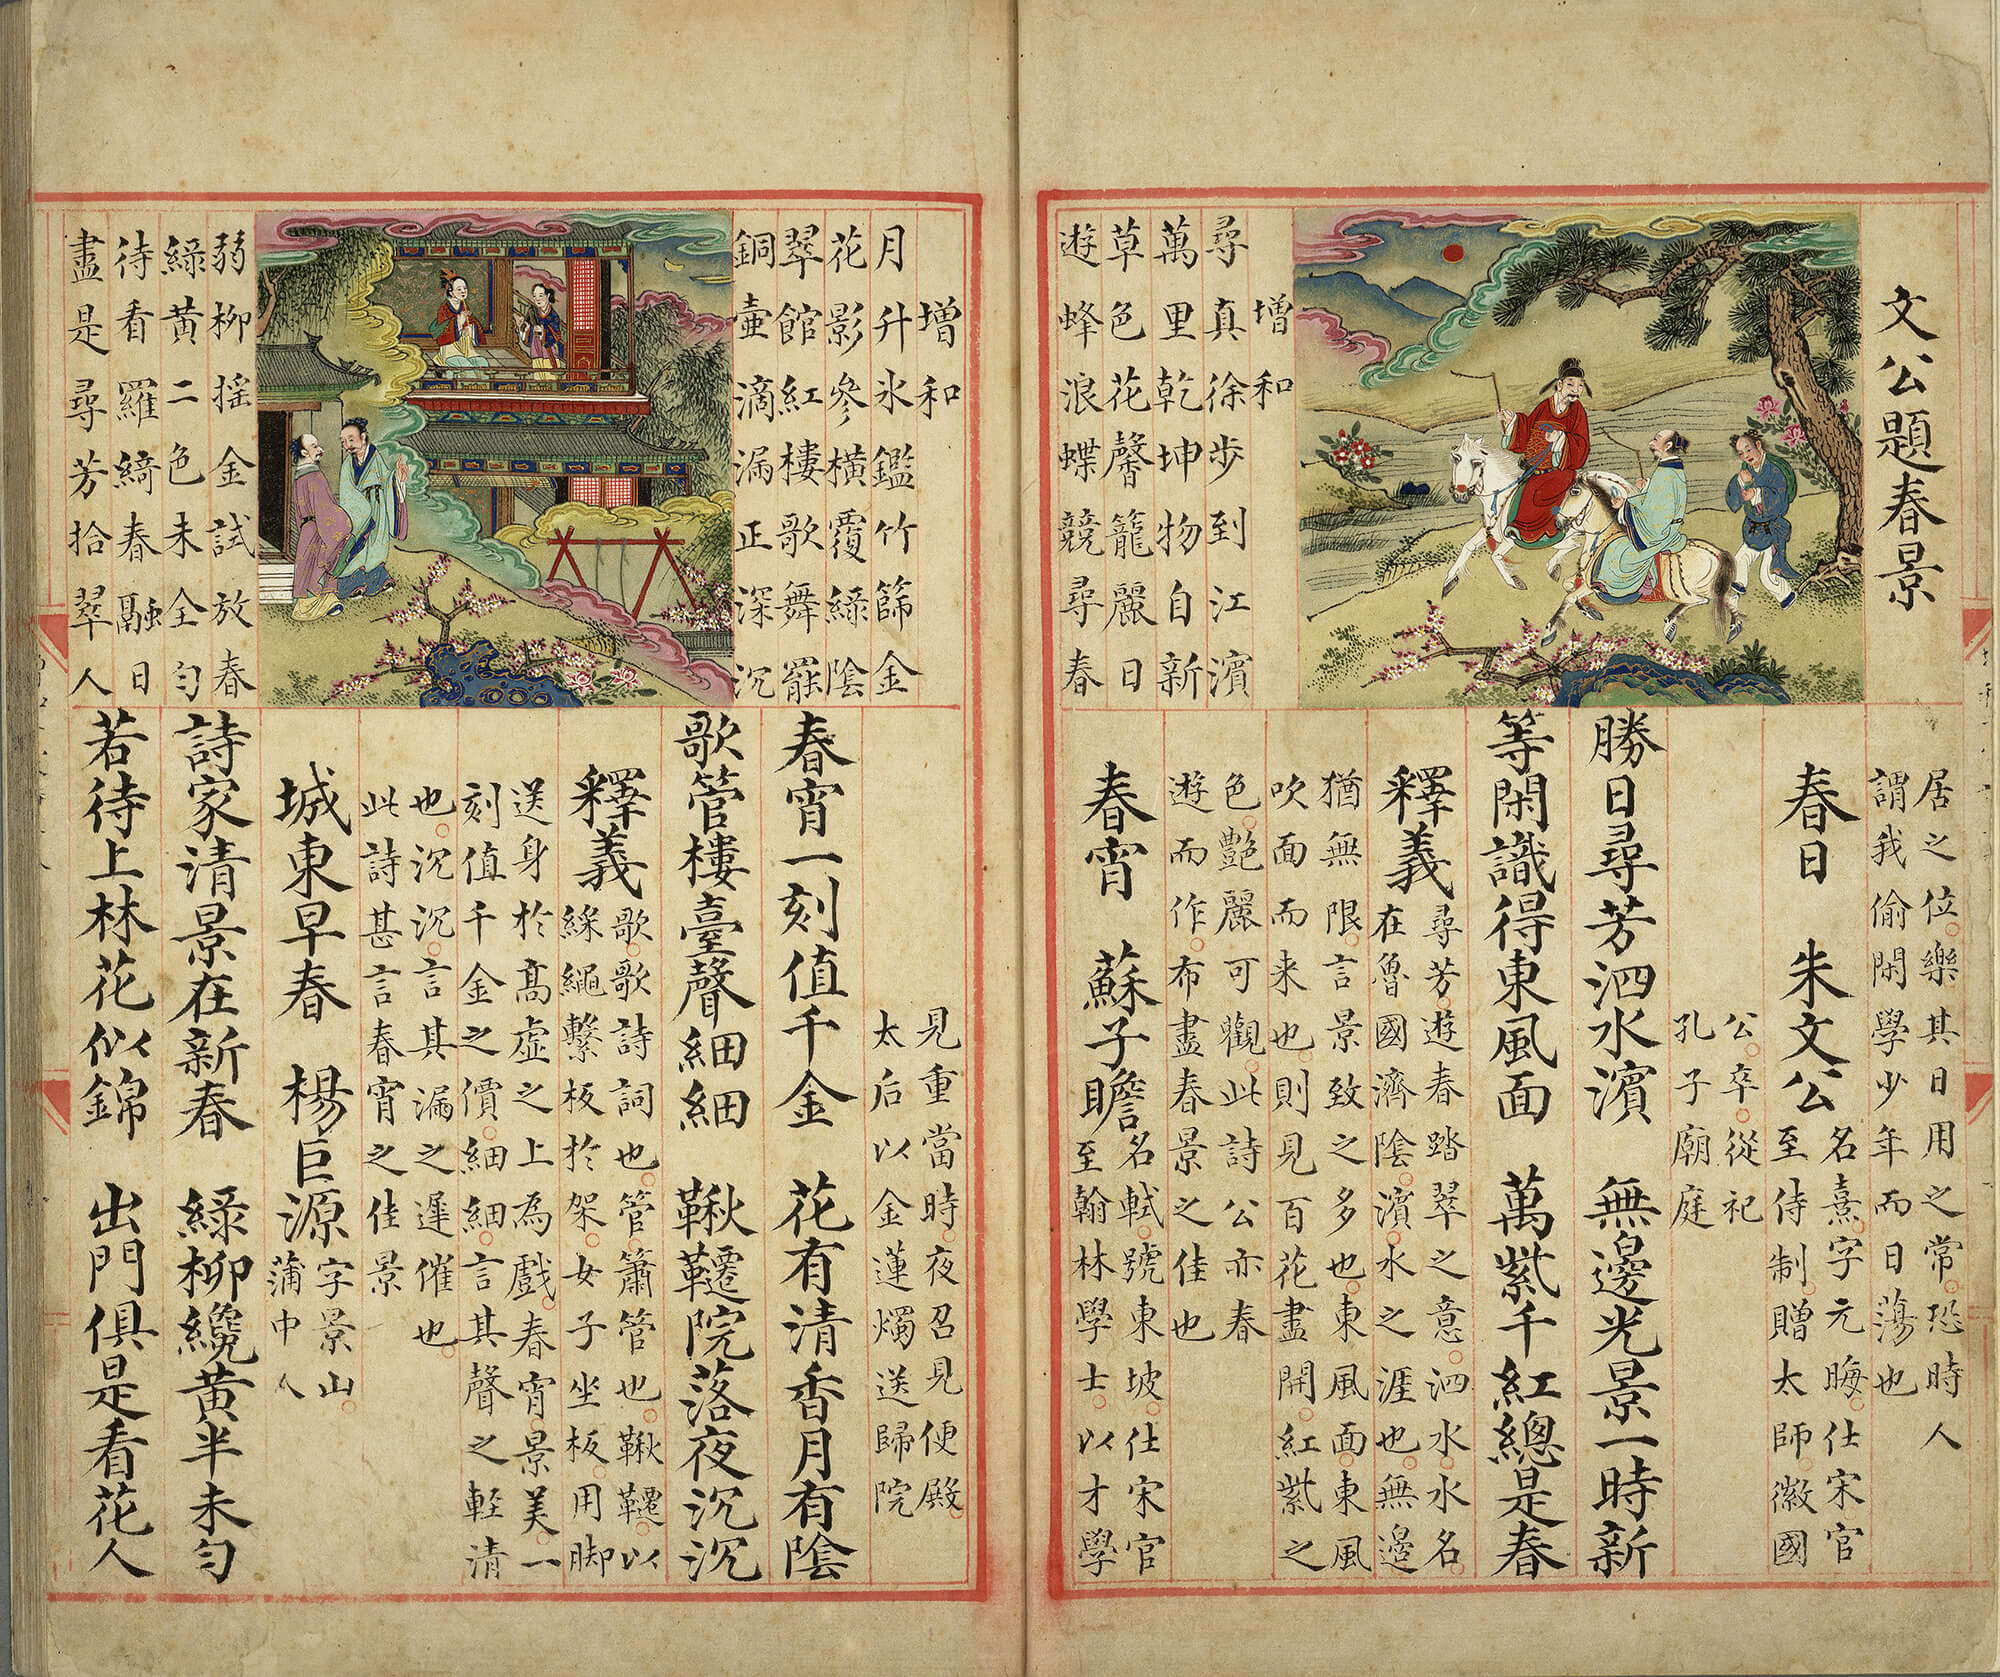 文公題春景
增和
尋真徐步到江濱
萬里乾坤物自新
草色花馨籠麗日
遊蜂浪蝶競尋春
居之位。樂其日用之常。恐時人
謂我偷閑學少年而日蕩也
春日 朱文公
名熹。字元晦。仕宋。官
至侍制。贈太師。徽國
公。卒。從祀
孔子廟庭
勝日尋芳泗水濱 無邊光景一時新
等閑識得東風面 萬紫千紅總是春
釋義
尋芳。遊春踏翠之意。泗水。水名。
在魯國濟陰。濱。水之涯也。無邊
猶無限。言景致之多也。東風面。東風
吹面而来也。則見百花盡開。紅紫之
色。艷麗可觀。此詩公亦春
遊而作。布盡春景之佳也
春宵 蘇子瞻
名軾。號東坡。仕宋官
至翰林學士。以才學
月升氷鑑竹篩金
增和
花影參橫覆綠陰
翠館紅樓歌舞罷
銅壺滴漏正深沉
弱柳搖金試放春
綠黃二色未全勻
待看羅綺春融日
盡是尋芳拾翠人
見重當時。夜召見便殿。
太后以金蓮燭送歸院
春宵一刻值千金 花有清香月有陰
歌管樓臺聲細細 鞦韆院落夜沉沉
釋義
歌。歌詩詞也。管。簫管也。鞦韆。以
綵繩繫板於架。女子坐板。用脚
送身於高虛之上為戲。春宵。景美。一
刻值千金之價。細細。言其聲之輕清
也。沉沉。言其漏之遲催也。
此詩甚言春宵之佳景
城東早春 楊巨源
字景山。
蒲中人
詩家清景在新春 綠柳纔黃半未勻
若待上林花似錦 出門俱是看花人